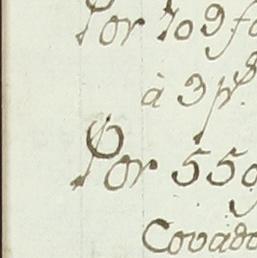 Por 709
à 3 p.
Por 559
Covado